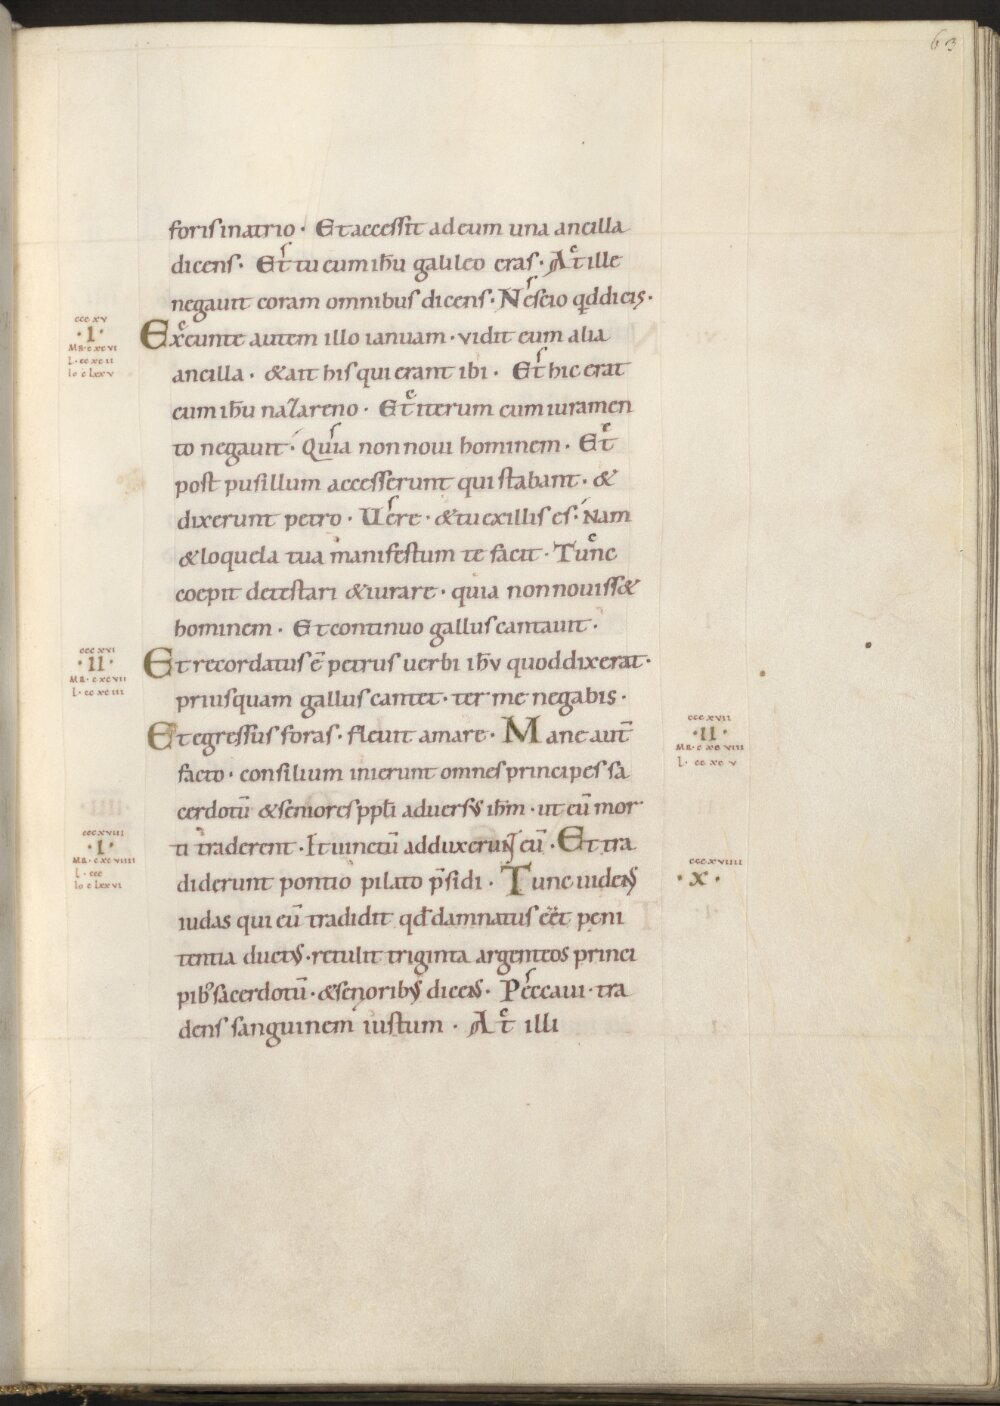 63
foris in atrio · Et accessit ad eum una ancilla
dicens · Et tu cum ihu galileo eras · At ille
negauit coram omnibus dicens · Nescio qd dicis ·
ccc xv
· I ·
MR · c xc vi
L · cc xc ii
Io c Lxx v
Exeunte autem illo ianuam · vidit eum alia
ancilla · & ait his qui erant ibi · Et hic erat
cum ihu nazareno · Et iterum cum iuramen
to negauit · Quia non noui hominem · Et
post pusillum accesserunt qui stabant · &
dixerunt petro · Uere · & tu ex illis es · Nam
& loquela tua manifestum te facit · Tunc
coepit detestari & iurare · quia non nouiss&
hominem · Et continuo gallus cantauit ·
ccc xvi
· II ·
MR · c xc vii
L · cc xc iii
Et recordatus ē petrus uerbi ihv quod dixerat ·
priusquam gallus cantet · ter me negabis ·
Et egressus foras · fleuit amare · Mane aut̄
ccc xvii
· II ·
MR · c xc viii
L · cc xc v
facto · consilium inierunt omnes principes sa
cerdotū & seniores ppli aduersus ihm · ut eū mor
ccc xviii
· I ·
MR · c xc viiii
L · ccc
Io c Lxx vi
ti traderent · It uinctū adduxerunt eū · Et tra
ccc xviiii
· x ·
diderunt pontio pilato p̄sidi · Tunc uidens
iudas qui eū tradidit qd damnatus eēt peni
tentia ductus · retulit triginta argenteos princi
pib; sacerdotū · & senioribus dicens · Peccaui · tra
dens sanguinem iustum · At illi